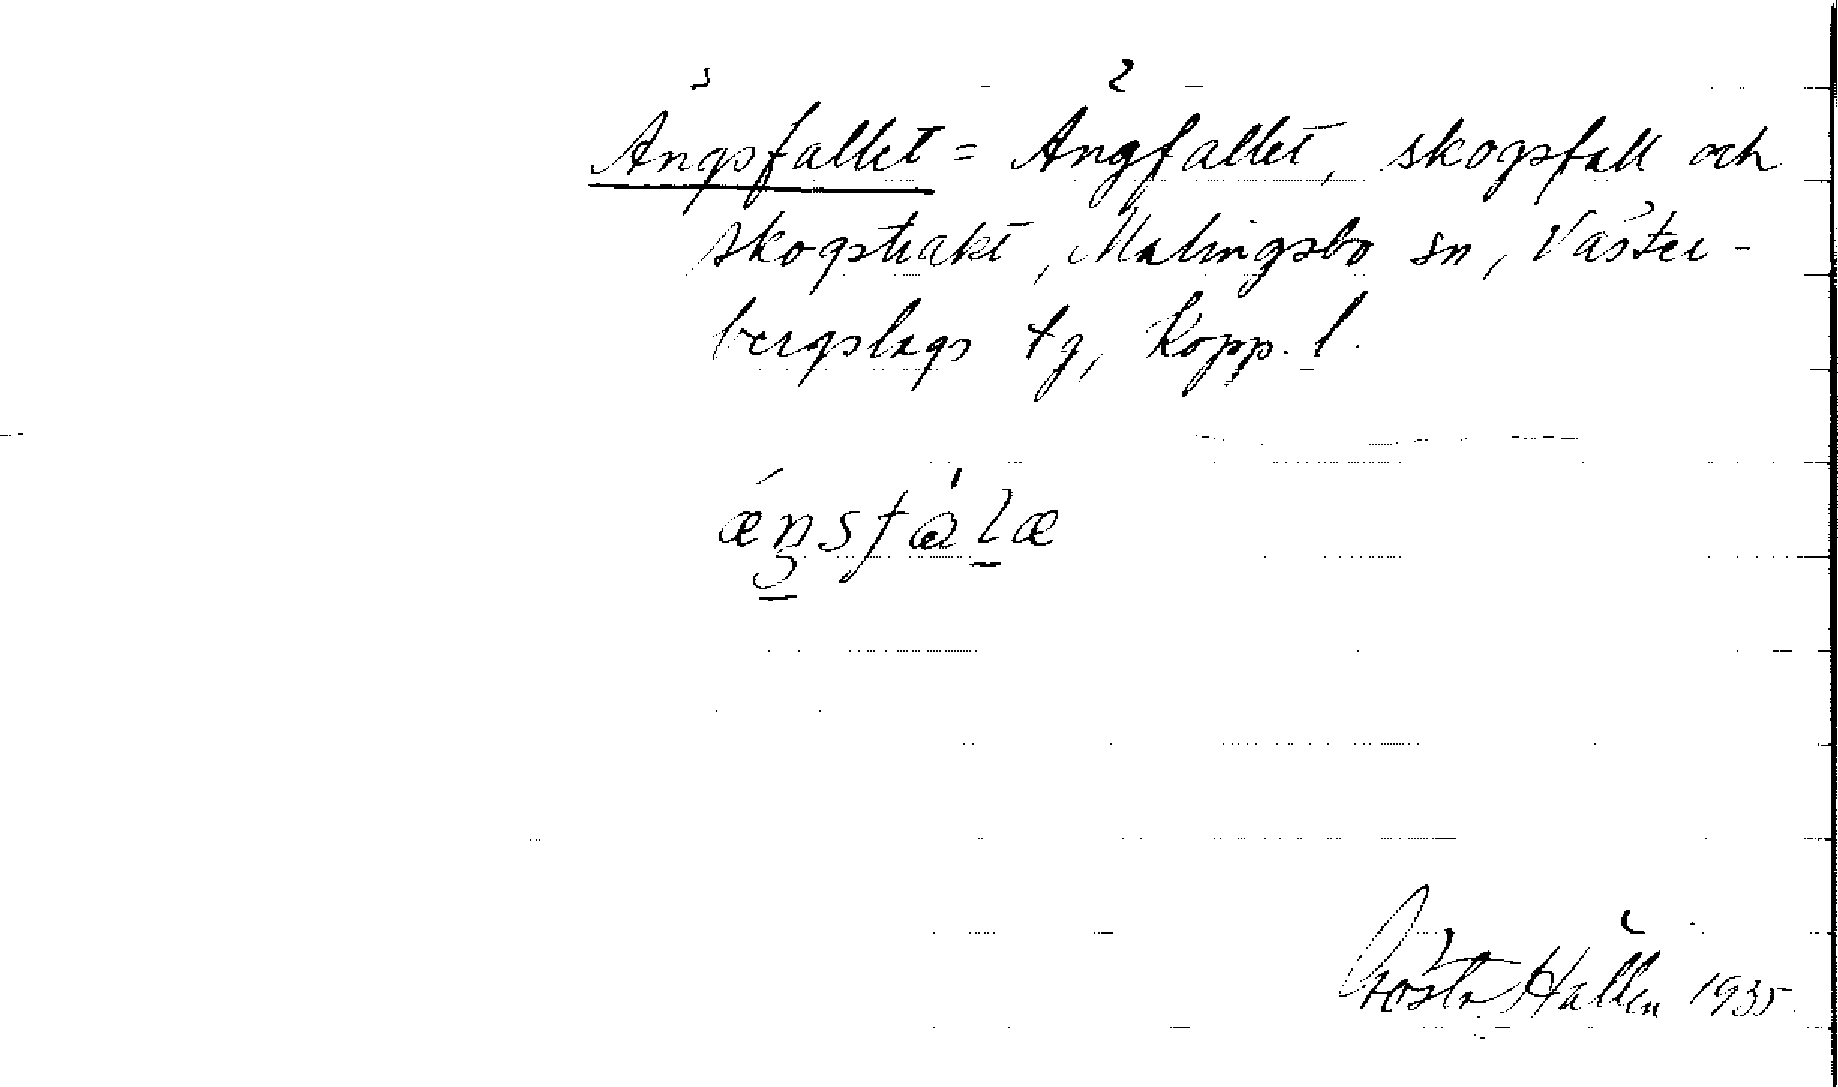 Ängsfallet = Ängfallet, skogsfall och
skogstrakt, Malingsbo sn, Väster-
bergslags tg, Kopp. l.
Gösta Hallén 1935